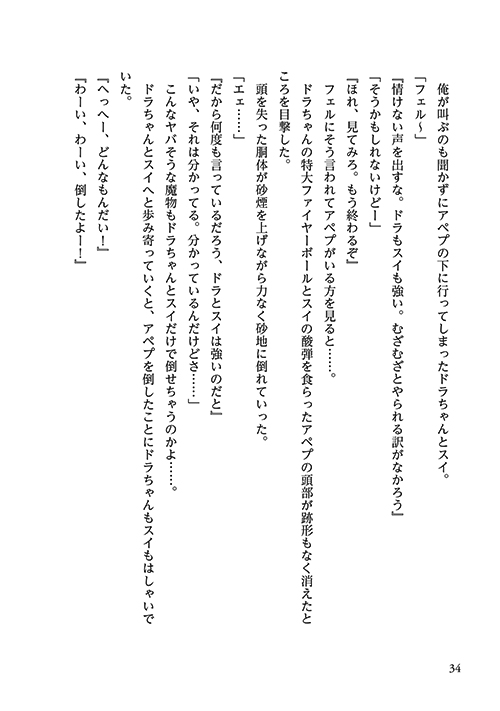 俺が叫ぶのも聞かずにアペプの下に行ってしまったドラちゃんとスイ。
「フェル～」
『情けない声を出すな。ドラもスイも強い。むざむざとやられる訳がなかろう』
「そうかもしれないけどー」
『ほれ、見てみろ。もう終わるぞ』
フェルにそう言われてアペプがいる方を見ると……。
ドラちゃんの特大ファイヤーボールとスイの酸弾を食らったアペプの頭部が跡形もなく消えたと
ころを目撃した。
頭を失った胴体が砂煙を上げながら力なく砂地に倒れていった。
「エェ……」
『だから何度も言っているだろう、ドラとスイは強いのだと』
「いや、それは分かってる。分かっているんだけどさ……」
こんなヤバそうな魔物もドラちゃんとスイだけで倒せちゃうのかよ……。
ドラちゃんとスイへと歩み寄っていくと、アペプを倒したことにドラちゃんもスイもはしゃいで
いた。
『へっへー、どんなもんだい！』
『わーい、わーい、倒したよー！』
34